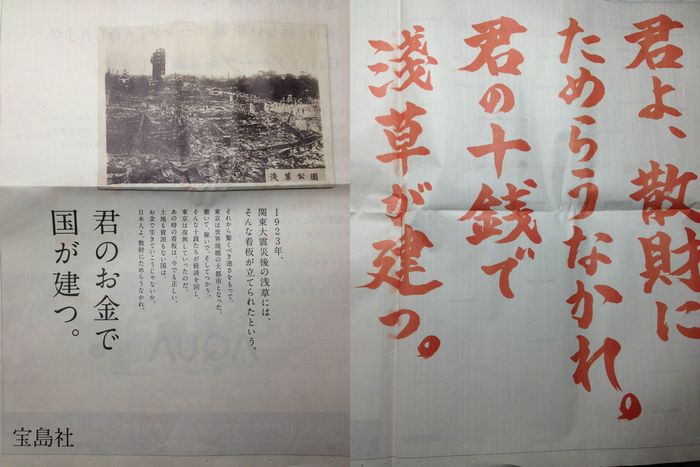 君よ、散財に
ためらうなかれ。
君の十銭で
淺草が建つ。
淺草公園
1923年、
関東大震災後の浅草には、
そんな看板が立てられたという。
それから驚くべき速さをもって、
東京は世界規模の大都市となった。
働いて、稼いで、そしてつかう。
そんな十銭たちが経済を回し、
東京は復興していったのだ。
あの時の看板は、今でも正しい。
土地も資源もない国は、
お金で生きていこうじゃないか。
日本人よ、散財にためらうなかれ。
君のお金で
国が建つ。
宝島社